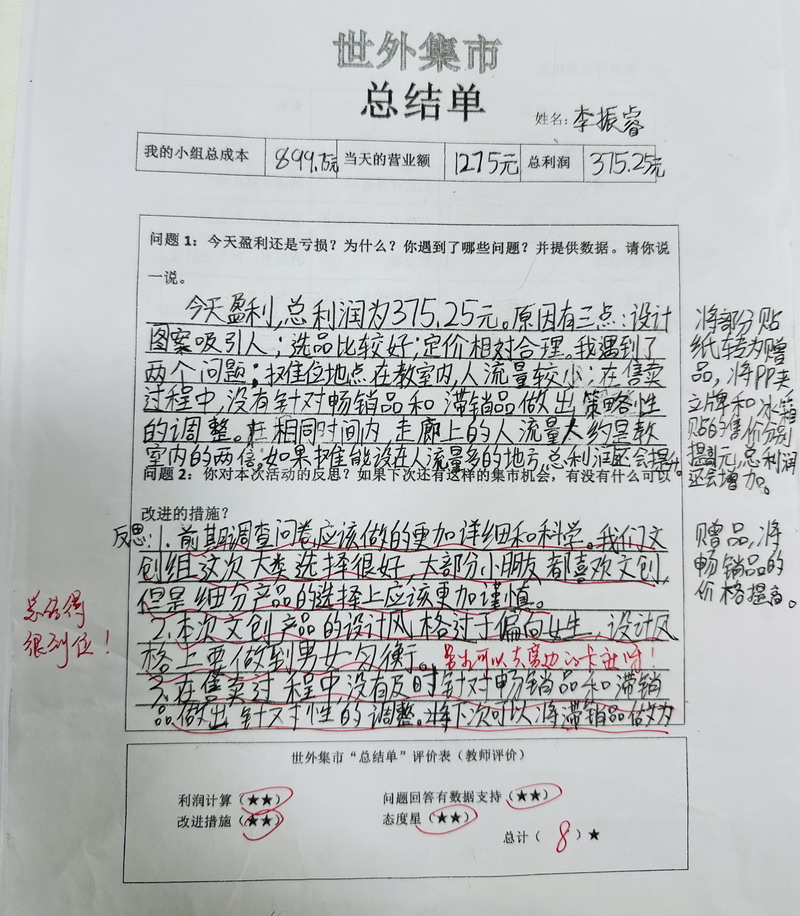 世外集市
总结单
姓名：李振睿
我的小组总成本 899.75元 当天的营业额 1275元 总利润 375.25元
问题1：今天盈利还是亏损？为什么？你遇到了哪些问题？并提供数据。请你说
一说。
今天盈利，总利润为375.25元。原因有三点：设计
图案吸引人；选品比较好；定价相对合理。我遇到了
两个问题；摊位地点在教室内，人流量较小；在售卖
过程中，没有针对畅销品和滞销品做出策略性
的调整。在相同时间内走廊上的人流量大约是教
室内的两倍，如果摊能设在人流量多的地方，总利润还会提升。
将部分贴
纸转为赠
品，将PP夹
立牌和冰箱
贴的售价分别
提高元，总利润
还会增加。
问题2：你对本次活动的反思？如果下次还有这样的集市机会，有没有什么可以
改进的措施？
反思：1.前期调查问卷应该做的更加详细和科学。我们文
创组这次大类选择很好，大部分小朋友都喜欢文创，
但是细分产品的选择上应该更加谨慎。
2.本次文创产品的设计风格过于偏向女生，设计风
格上要做到男女匀衡。
3.在售卖过程中，没有及时针对畅销品和滞销
品做出针对性的调整。将下次可以将滞销品做为
赠品，将
畅销品的
价格提高。
总结得
很到位！
世外集市“总结单”评价表（教师评价）
利润计算（★★） 问题回答有数据支持（★★）
改进措施（★★） 态度星（★★）
总计（8）★